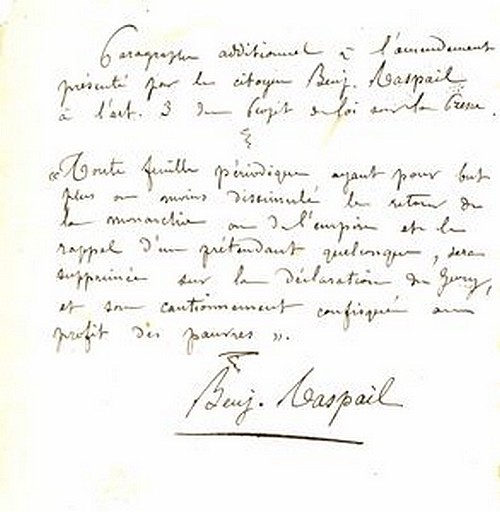 Paragraphe additionnel à l'amendement
présenté par le citoyen Benj. Raspail
à l'art. 3 du Projet de loi sur la Presse.
« Toute feuille périodique ayant pour but
plus ou moins dissimulé le retour de
la monarchie ou de l'empire et le
rappel d'un prétendant quelconque, sera
supprimée sur la déclaration du Jury,
et son cautionnement confisqué au
profit des pauvres ».
Benj. Raspail